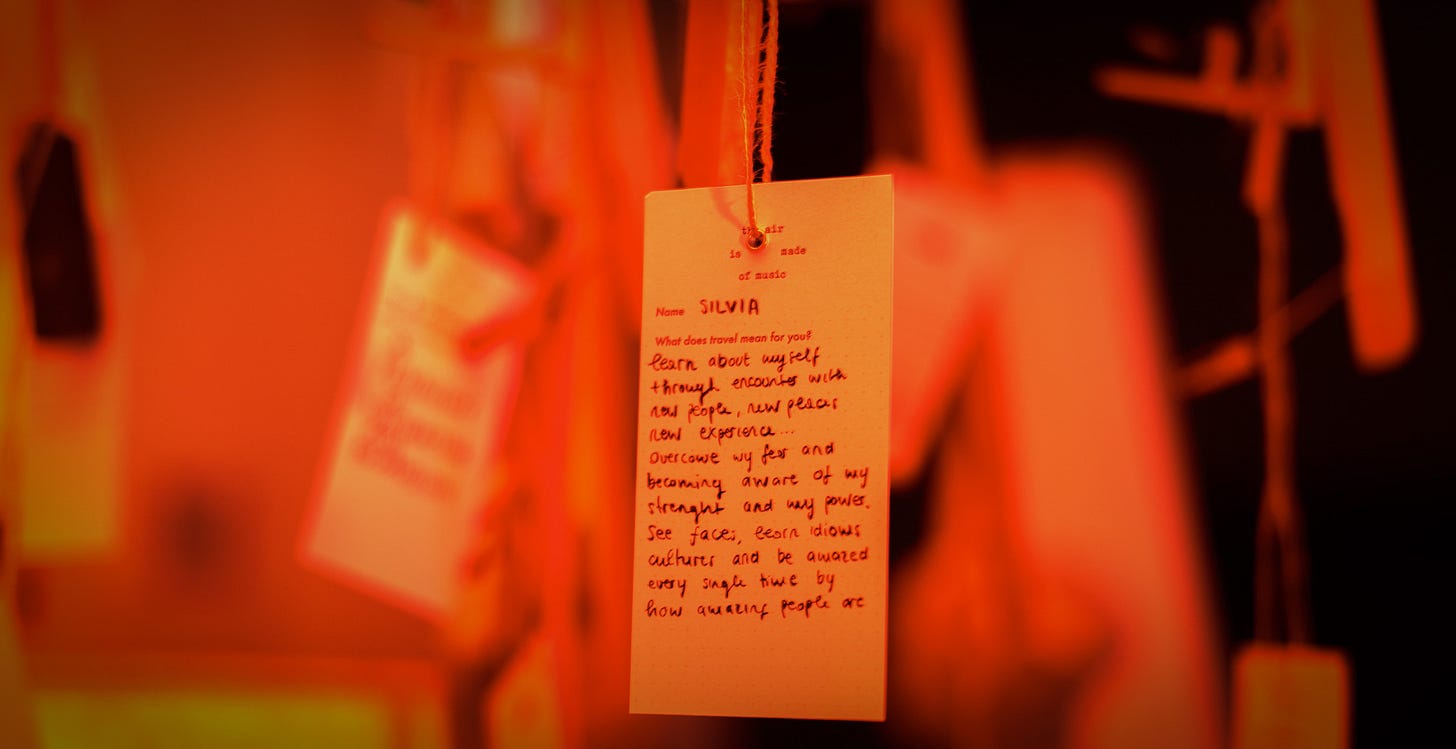 the air
is made
of music
Name SILVIA
What does travel mean for you?
learn about myself
through encounter with
new people, new peaces
new experience...
Overcome my fear and
becoming aware of my
strenght and my power.
See faces, learn idioms
cultures and be amazed
every single time by
how amazing people are